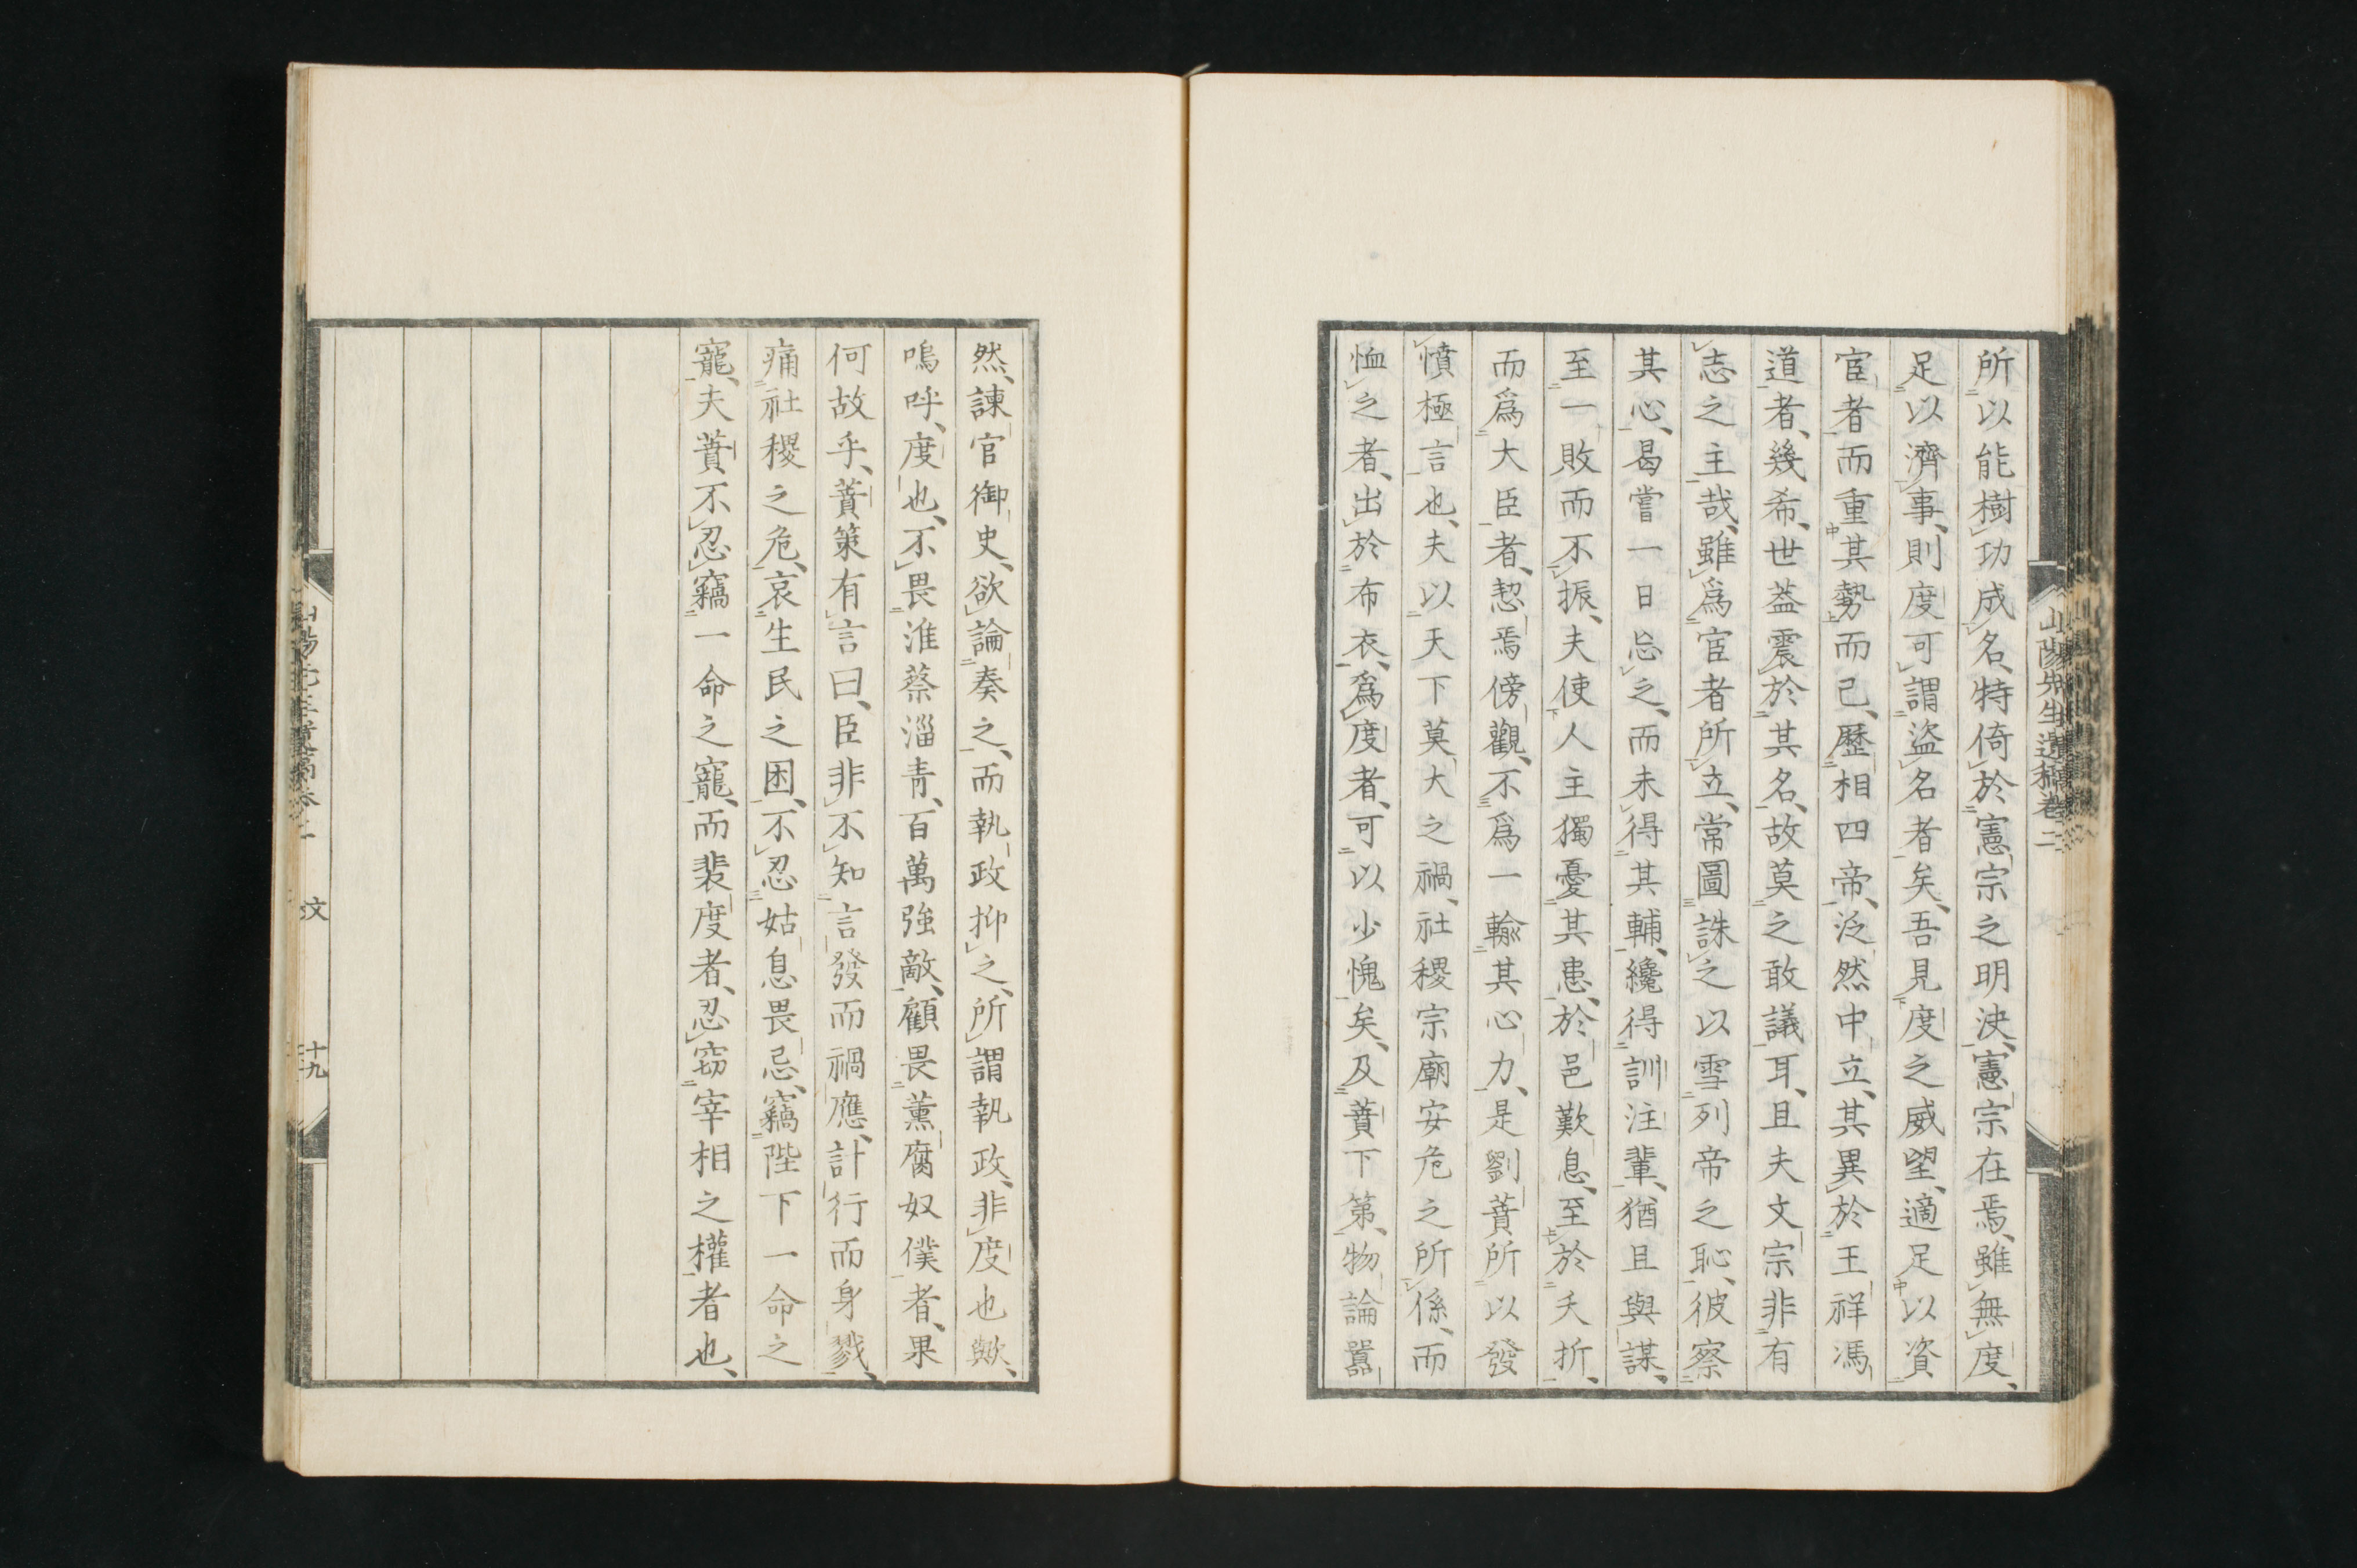 所以能樹功成名、特倚於憲宗之明決、憲宗在焉、雖無度、
足以濟事、則度可謂盜名者矣、吾見度之威望、適足以資
宦者而重其勢而已、歷相四帝、泛然中立、其異於王祥馮
道者、幾希、世蓋震於其名、故莫之敢議耳、且夫文宗非有
志之主哉、雖爲宦者所立、常圖誅之以雪列帝之恥、彼察
其心、曷嘗一日忘之、而未得其輔、纔得訓注輩、猶且與謀、
至一敗而不振、夫使人主獨憂其患、於邑歎息、至於夭折、
而爲大臣者、恝焉傍觀、不爲一輸其心力、是劉蕡所以發
憤極言也、夫以天下莫大之禍、社稷宗廟安危之所係、而
恤之者、出於布衣、爲度者、可以少愧矣、及蕡下第、物論囂
然、諫官御史、欲論奏之、而執政抑之、所謂執政、非度也歟、
嗚呼、度也、不畏淮蔡淄青、百萬強敵、顧畏薰腐奴僕者、果
何故乎、蕡策有言曰、臣非不知言發而禍應、計行而身戮、
痛社稷之危、哀生民之困、不忍姑息畏忌、竊陛下一命之
寵、夫蕡不忍竊一命之寵、而裴度者、忍窃宰相之權者也、
山陽先生遺稿卷二
文
十九